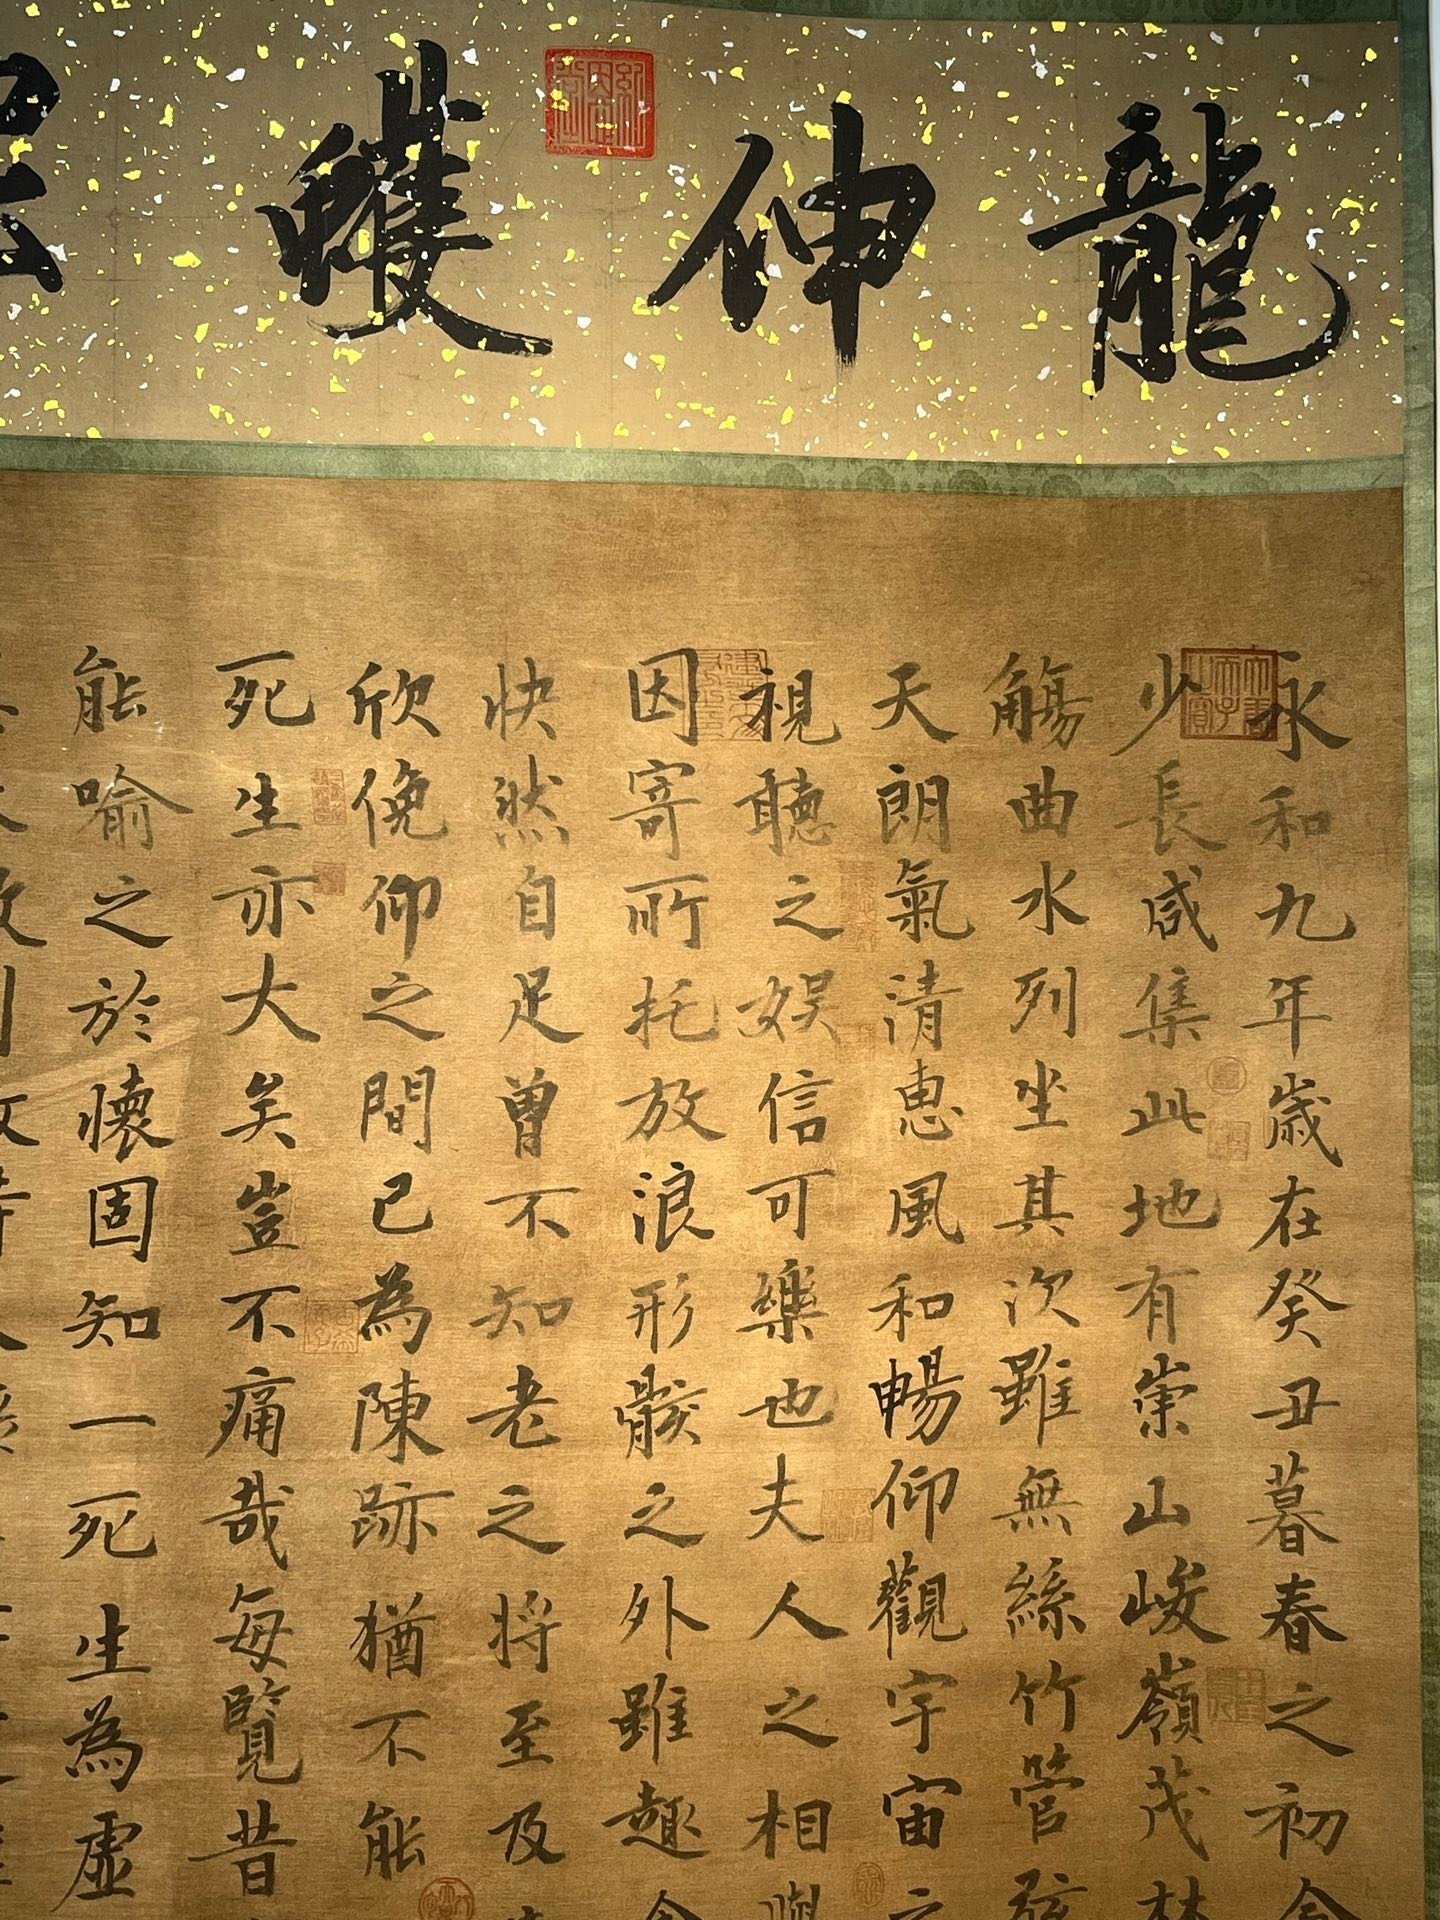 龍伸蠖屈
永和九年歲在癸丑暮春之初會
少長咸集此地有崇山峻嶺茂林
觴曲水列坐其次雖無絲竹管弦
天朗氣清惠風和暢仰觀宇宙之
視聽之娛信可樂也夫人之相與
因寄所托放浪形骸之外雖趣舍
快然自足曾不知老之將至及
欣俛仰之間已為陳跡猶不能
死生亦大矣豈不痛哉每覽昔
能喻之於懷固知一死生為虛